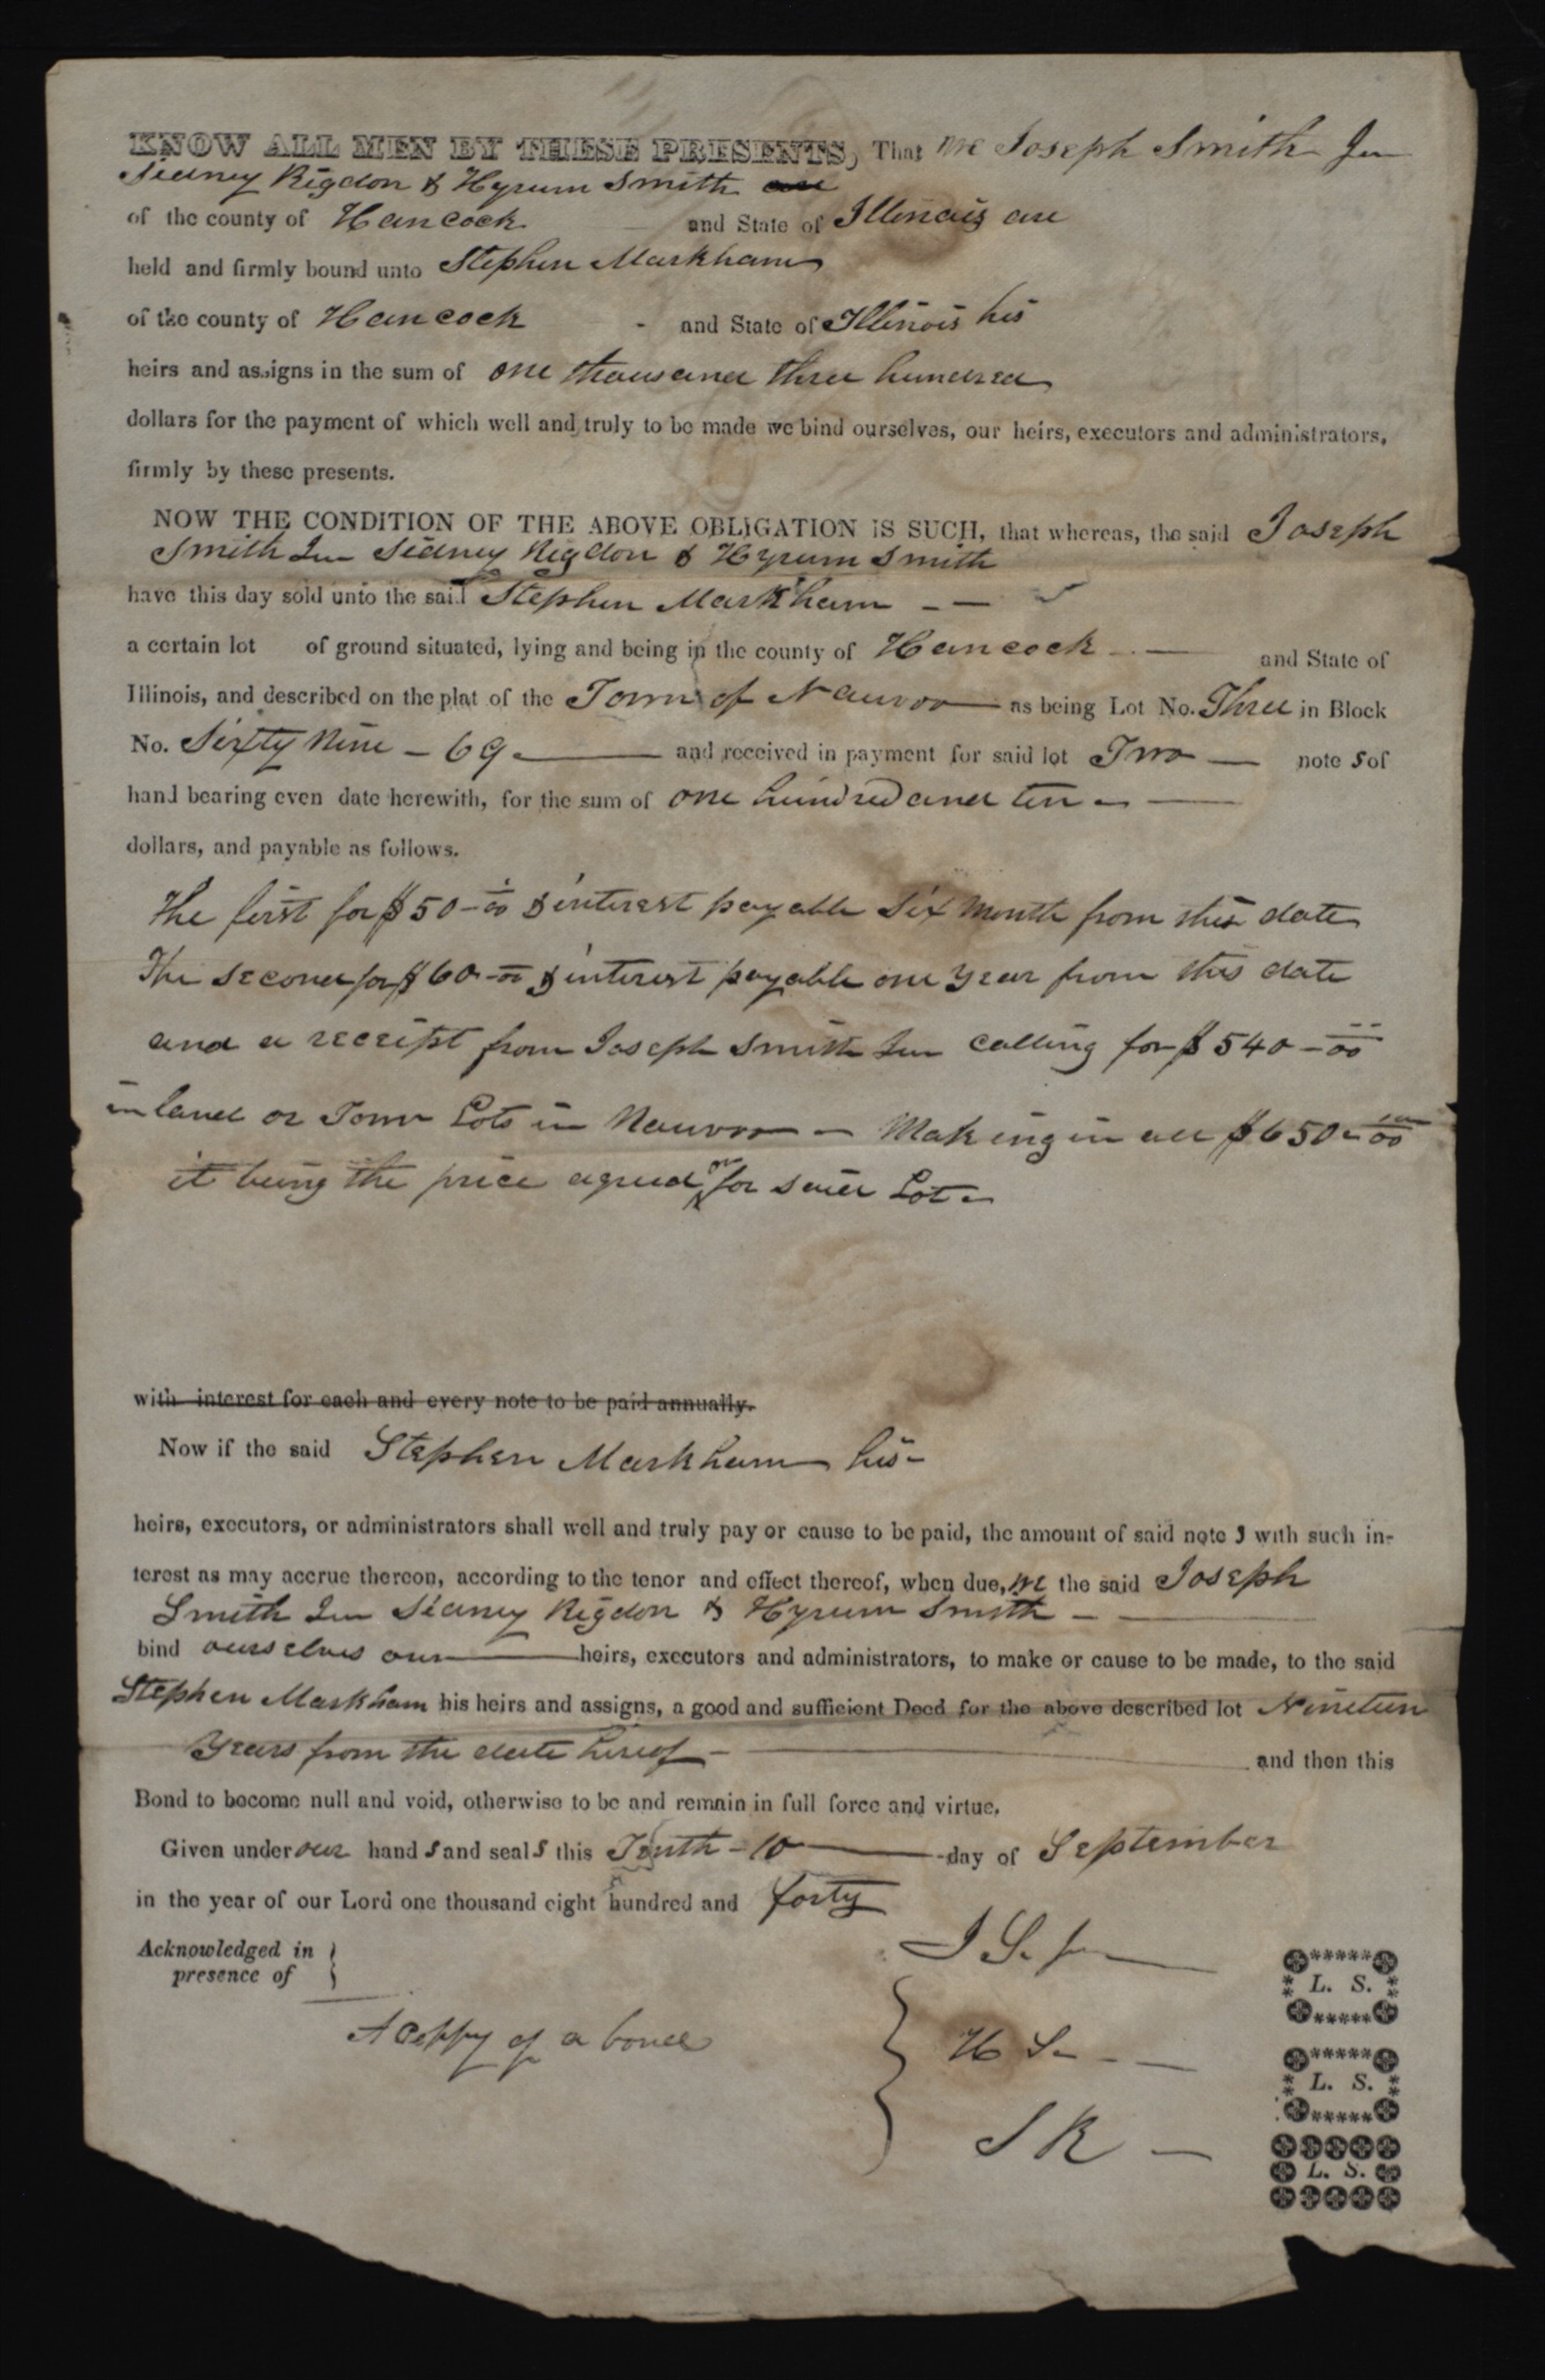 KNOW ALL MEN BY THESE PRESENTS, That We Joseph Smith Jun
Sidney Rigdon & Hyrum Smith are
of the county of Hancock and State of Illinois are
held and firmly bound unto Stephen Markham
of the county of Hancock - and State of Illinois his
heirs and assigns in the sum of one thousand three hundred
dollars for the payment of which well and truly to be made we bind ourselves, our heirs, executors and administrators,
firmly by these presents.
NOW THE CONDITION OF THE ABOVE OBLIGATION IS SUCH, that whereas, the said Joseph
Smith Jun Sidney Rigdon & Hyrum Smith
have this day sold unto the said Stephen Markham - -
a certain lot of ground situated, lying and being in the county of Hancock - — and State of
Illinois, and described on the plat of the Town of Nauvoo — as being Lot No. Three in Block
No. Sixty Nine - 69 — and received in payment for said lot Two — note s of
hand bearing even date herewith, for the sum of one hundred and ten - —
dollars, and payable as follows.
The first for $50-00 & interest payable Six Month from this date
The second for $60-00 & interest payable one Year from this date
and a receipt from Joseph Smith Jun calling for $540-00
in land or Town Lots in Nauvoo — Making in all $650-00
it being the price agreed on for said Lot -
with interest for each and every note to be paid annually.
Now if the said Stephen Markham his -
heirs, executors, or administrators shall well and truly pay or cause to be paid, the amount of said note s with such in-
terest as may accrue thereon, according to the tenor and effect thereof, when due, We the said Joseph
Smith Jun Sidney Rigdon & Hyrum Smith - —
bind ourselves our — heirs, executors and administrators, to make or cause to be made, to the said
Stephen Markham his heirs and assigns, a good and sufficient Deed for the above described lot Nineteen
Years from the date hereof - — and then this
Bond to become null and void, otherwise to be and remain in full force and virtue.
Given under our hand s and seal s this Tenth - 10 — day of September
in the year of our Lord one thousand eight hundred and forty
Acknowledged in }
presence of
J S. Jn —
L. S.
A Coppy of a bond
H S - - —
L. S.
S R —
L. S.